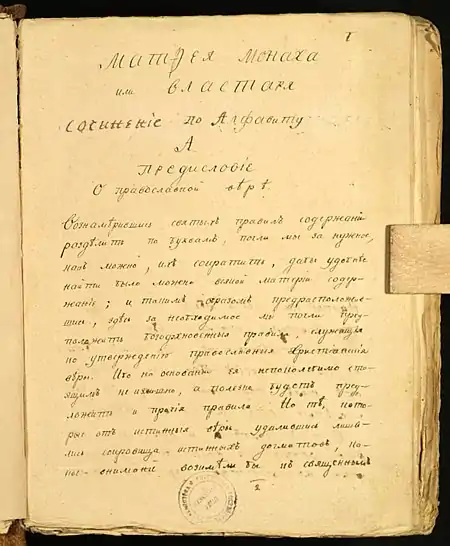 1
Матѳея Монаха
или Властаря
Сочиненіе по Алфавиту
А
Предисловіе
О православной вѣрѣ.
Вознамѣрившись святыхъ правилъ содержаніе
раздѣлить по буквамъ, почли мы за нужное,
какъ можно, ихъ сократить, дабы удобнѣе
найти было можно всякой матеріи содер-
жаніе; и такимъ образомъ предрасположив-
шись, здѣсь за необходимое мы почли пред-
положить богодхновенныя правила, служащія
по утвержденію православныя Христіанскія
вѣры. Ибо на основаніи ея непоколебимо сто-
ящимъ не излишно, а полезно будетъ пред-
ложить и прочія правила. Но тѣ, кото-
рые отъ истинныя вѣры удалившись лиши-
лись сокровища истинныхъ догматовъ, ка-
кое вниманіе возимѣли бы къ священнымъ